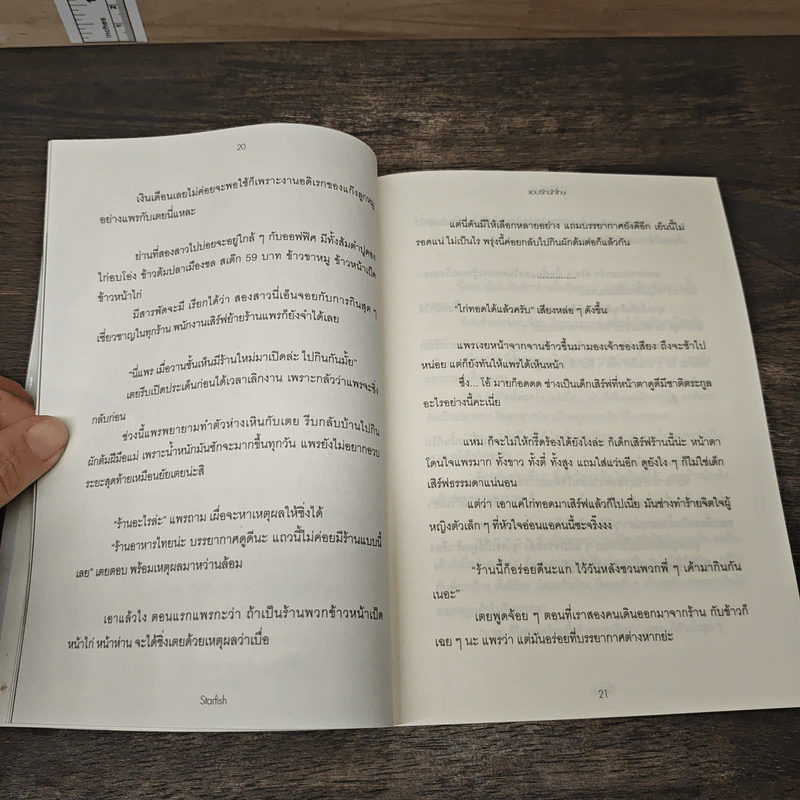 inches
1
2
20
เงินเดือนเลยไม่ค่อยจะพอใช้ก็เพราะงานอดิเรกของแก๊งลูกหมู
อย่างแพรกับเตยนี่แหละ
ย่านที่สองสาวไปบ่อยจะอยู่ใกล้ ๆ กับออฟฟิศ มีทั้งส้มตำปูดอง
ไก่อบโอ่ง ข้าวต้มปลาเมืองชล สเต๊ก 59 บาท ข้าวขาหมู ข้าวหน้าเป็ด
ข้าวหน้าไก่
มีสารพัดจะมี เรียกได้ว่า สองสาวนี่เอ็นจอยกับการกินสุด ๆ
เชี่ยวชาญในทุกร้าน พนักงานเสิร์ฟย้ายร้านแพรก็ยังจำได้เลย
"นี่แพร เมื่อวานชั้นเห็นมีร้านใหม่มาเปิดล่ะ ไปกินกันมั้ย"
เตยรีบเปิดประเด็นก่อนได้เวลาเลิกงาน เพราะกลัวว่าแพรจะชิ่ง
กลับก่อน
ช่วงนี้แพรพยายามทำตัวห่างเหินกับเตย รีบกลับบ้านไปกิน
ผักต้มฝีมือแม่ เพราะน้ำหนักมันชักจะมากขึ้นทุกวัน แพรยังไม่อยากอวบ
ระยะสุดท้ายเหมือนยัยเตยน่ะสิ
"ร้านอะไรล่ะ" แพรถาม เผื่อจะหาเหตุผลให้ชิ่งได้
"ร้านอาหารไทยน่ะ บรรยากาศดูดีนะ แถวนี้ไม่ค่อยมีร้านแบบนี้
เลย" เตยตอบ พร้อมเหตุผลมาหว่านล้อม
เอาแล้วไง ตอนแรกแพรกะว่า ถ้าเป็นร้านพวกข้าวหน้าเป็ด
หน้าไก่ หน้าห่าน จะได้ชิ่งเตยด้วยเหตุผลว่าเบื่อ
Starfish
แอบรักนักโทษ
แต่นี่ดันมีให้เลือกหลายอย่าง แถมบรรยากาศยังดีอีก เย็นนี้ไม่
รอดแน่ ไม่เป็นไร พรุ่งนี้ค่อยกลับไปกินผักต้มต่อก็แล้วกัน
................
"ไก่ทอดได้แล้วครับ" เสียงหล่อ ๆ ดังขึ้น
แพรเงยหน้าจากจานข้าวขึ้นมามองเจ้าของเสียง ถึงจะช้าไป
หน่อย แต่ก็ยังทันให้แพรได้เห็นหน้า
ซึ่ง... โอ้ มายก็อดดด ช่างเป็นเด็กเสิร์ฟที่หน้าตาดูดีมีชาติตระกูล
อะไรอย่างนี้คะเนี่ย
แหม ก็จะไม่ให้กรี๊ดร้องได้ยังไงล่ะ ก็เด็กเสิร์ฟร้านนี้น่ะ หน้าตา
โดนใจแพรมาก ทั้งขาว ทั้งตี๋ ทั้งสูง แถมใส่แว่นอีก ดูยังไง ๆ ก็ไม่ใช่เด็ก
เสิร์ฟธรรมดาแน่นอน
แต่ว่า เอาแค่ไก่ทอดมาเสิร์ฟแล้วก็ไปเนี่ย มันช่างทำร้ายจิตใจผู้
หญิงตัวเล็ก ๆ ที่หัวใจอ่อนแอคนนี้ซะจริงงง
"ร้านนี้ก็อร่อยดีนะแก ไว้วันหลังชวนพวกพี่ ๆ เค้ามากินกัน
เนอะ"
เตยพูดจ้อย ๆ ตอนที่เราสองคนเดินออกมาจากร้าน กับข้าวก็
เฉย ๆ นะ แพรว่า แต่มันอร่อยที่บรรยากาศต่างหากย่ะ
21